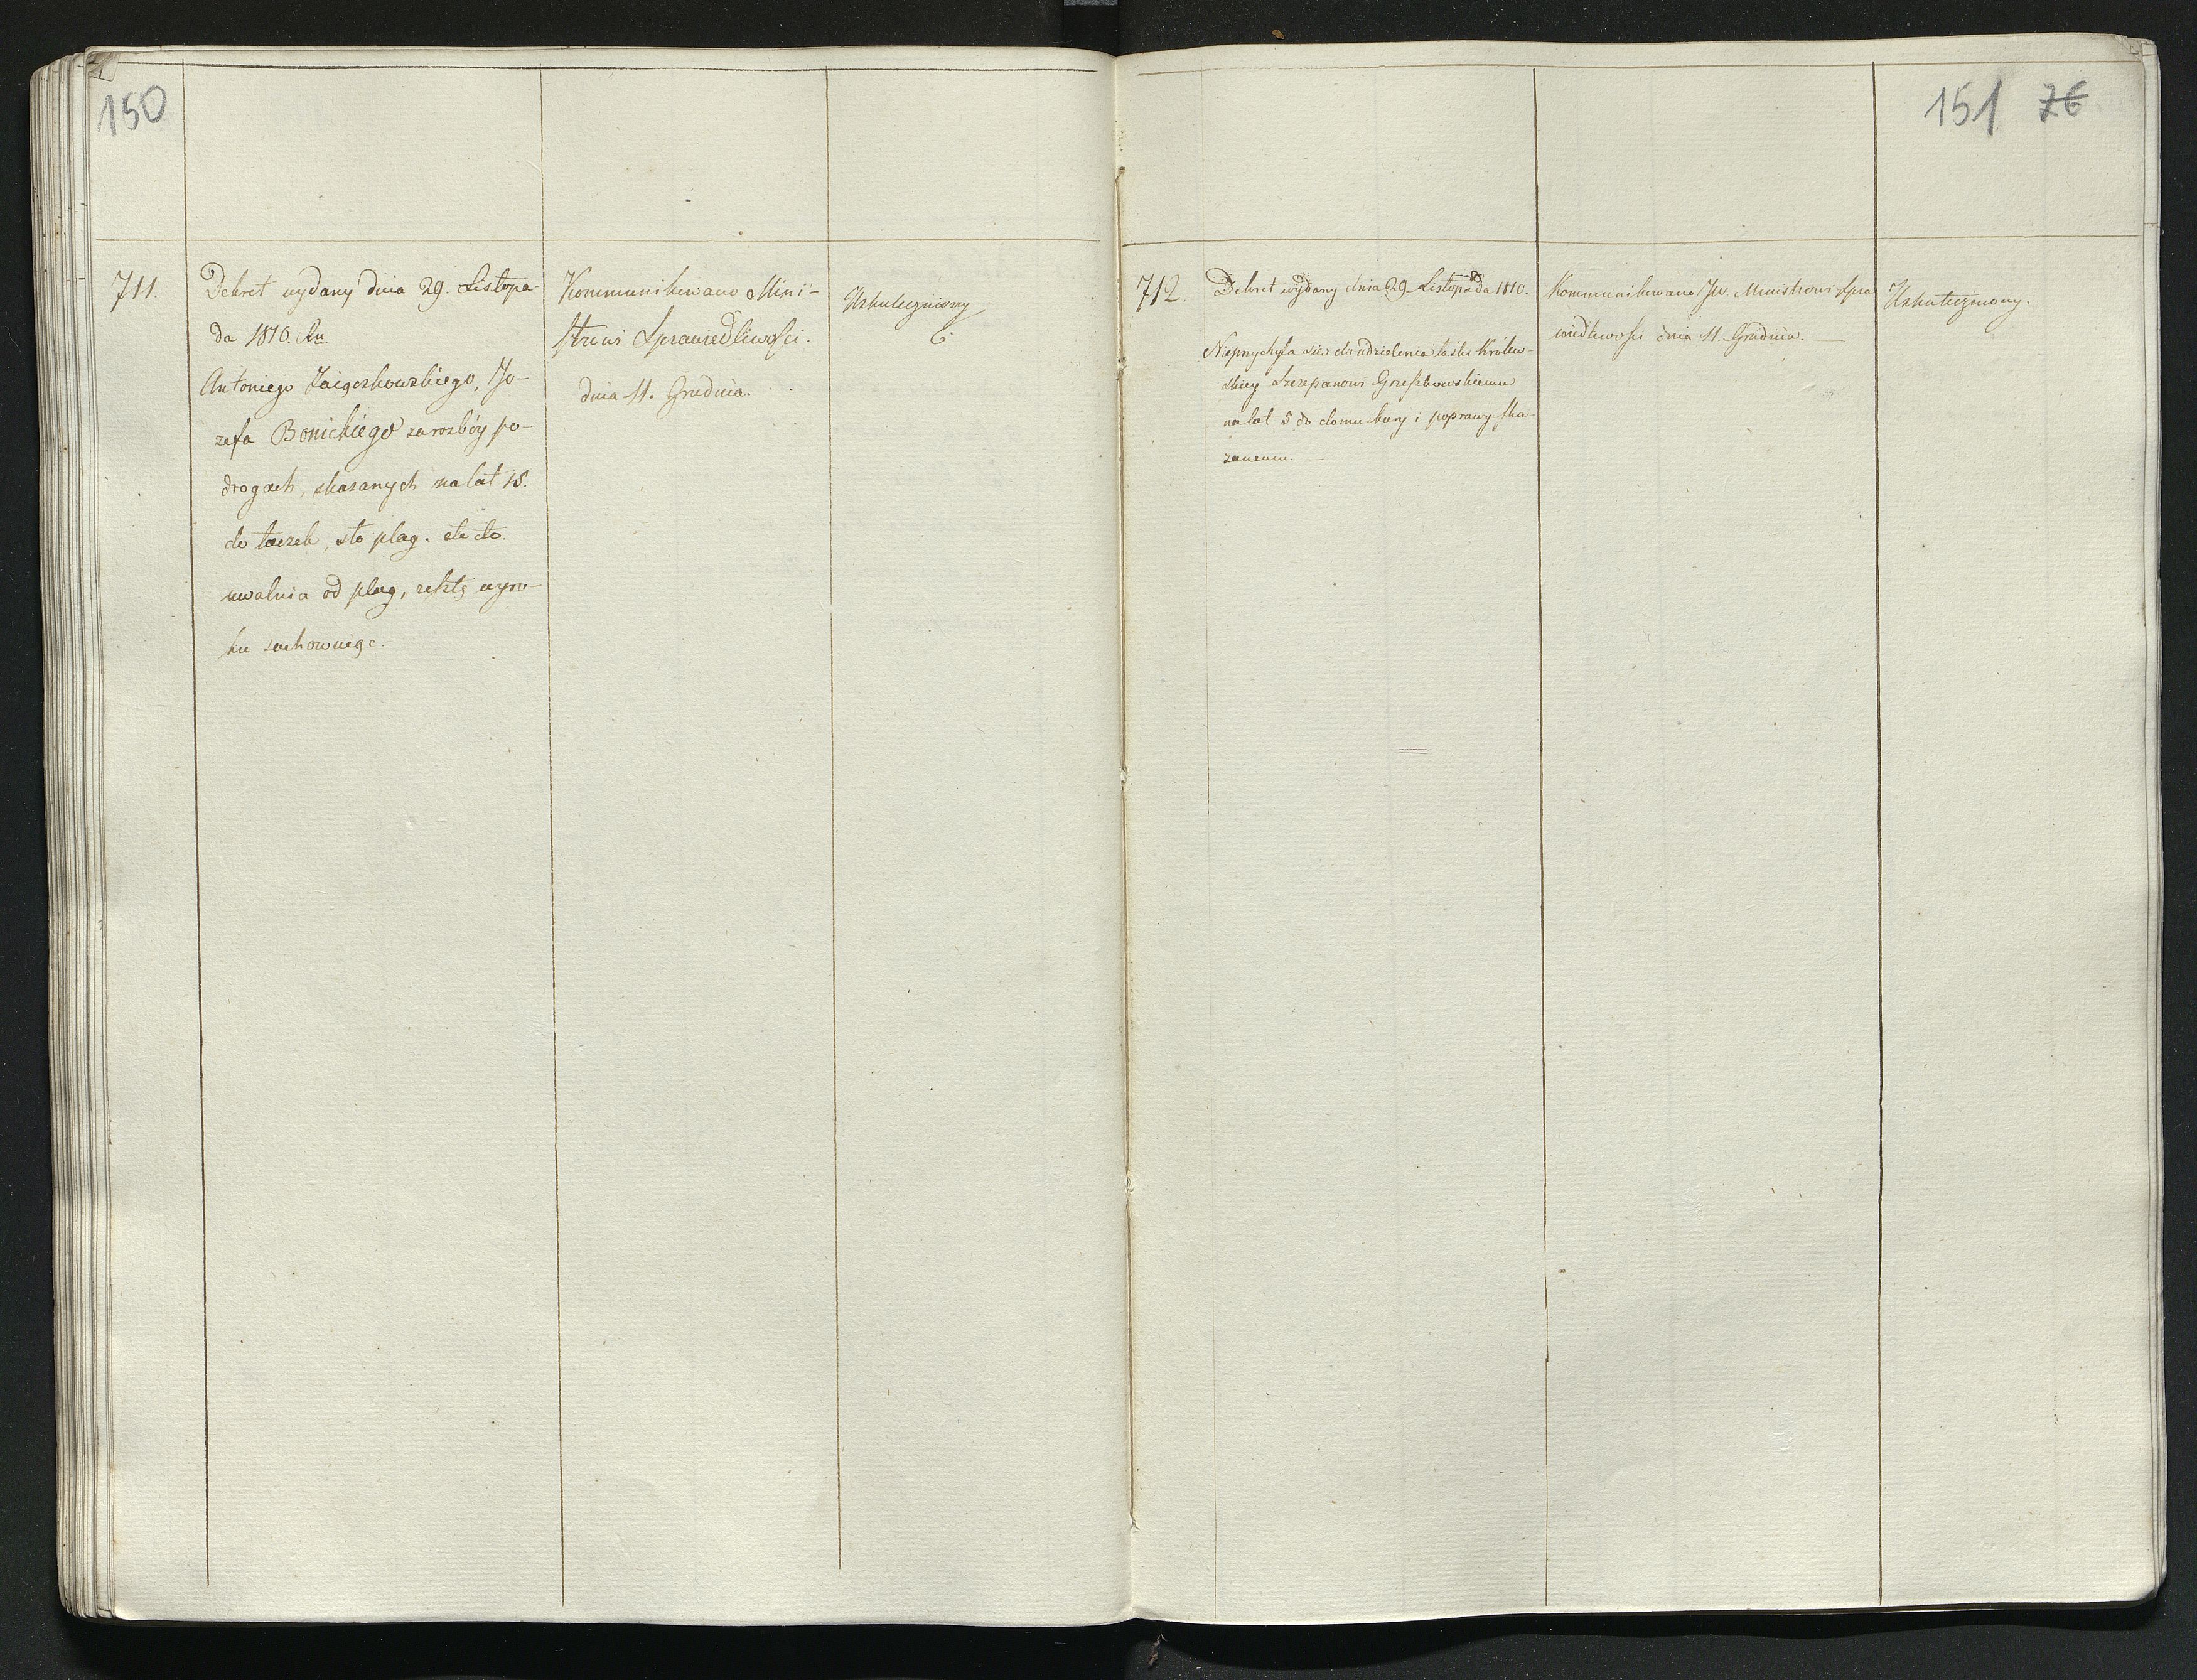 150
711.
Dekret wydany dnia 29. Listopa-
da 1810. Ru
Antoniego Zaiączkowskiego, Jo-
zefa Bonickiego za rozbóy po-
drogach, skazanych na lat 15.
do taczek, sto plag. etc etc.
uwalnia od plag, resztę wyro-
ku zachowuiąc.
Kommunikowano Mini-
strowi Sprawiedliwości.
dnia 11. Grudnia.
Uskuteczniony
151 76
712.
Dekret wydany dnia 29. Listopada 1810.
Nieprzychyla się do udzielenia łaski Królew-
skiey Szczepanowi Grzeszkowskiemu
na lat 5 do domu kary i poprawy ska-
zanemu. —
Kommunikowano JW. Ministrowi Spra
wiedliwości dnia 11. Grudnia. —
Uskuteczniony.